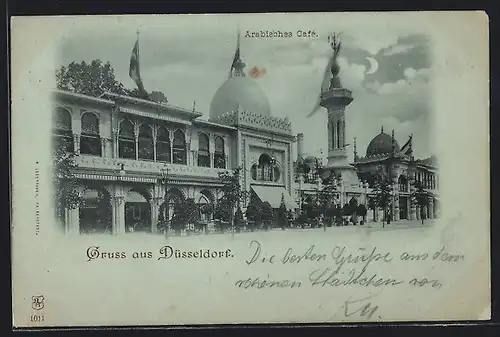 Arabisches Café.
Gruss aus Düsseldorf.
Die besten Grüße aus dem
schönen Städtchen von
1011